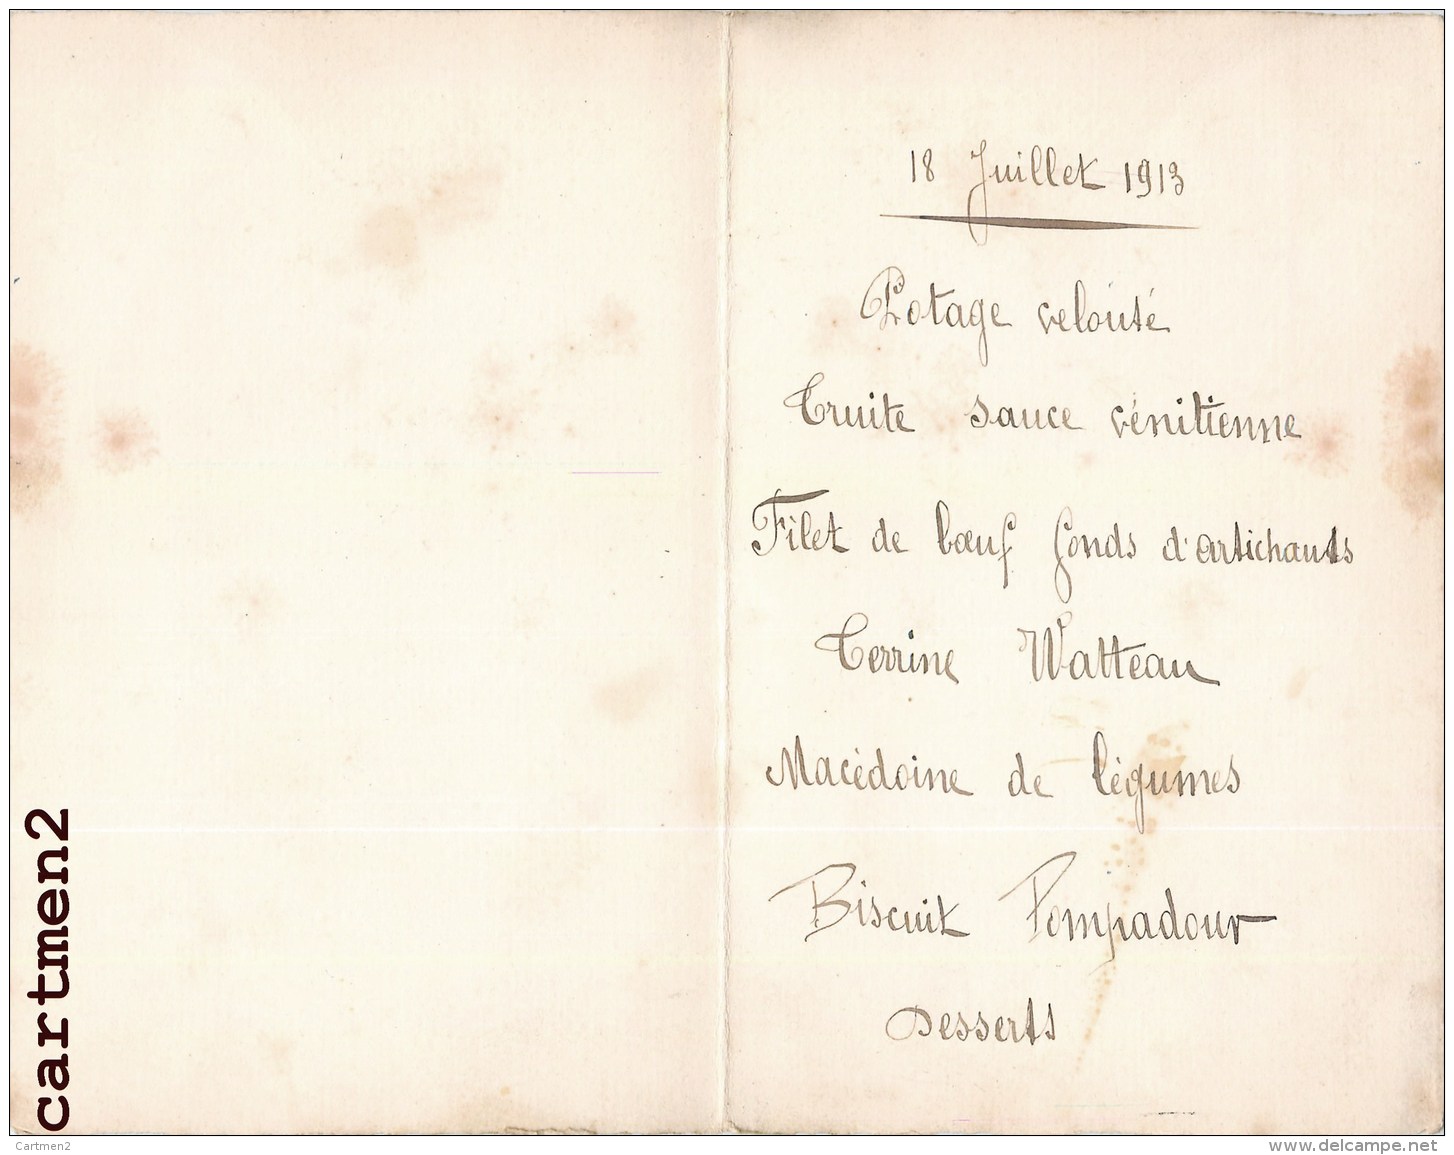 18 Juillet 1913
Potage velouté
Truite sauce vénitienne
Filet de bœuf fonds d'artichauts
Terrine Watteau
Macédoine de légumes
Biscuit Pompadour
Desserts
cartmen2
Cartmen2
www.delcampe.net